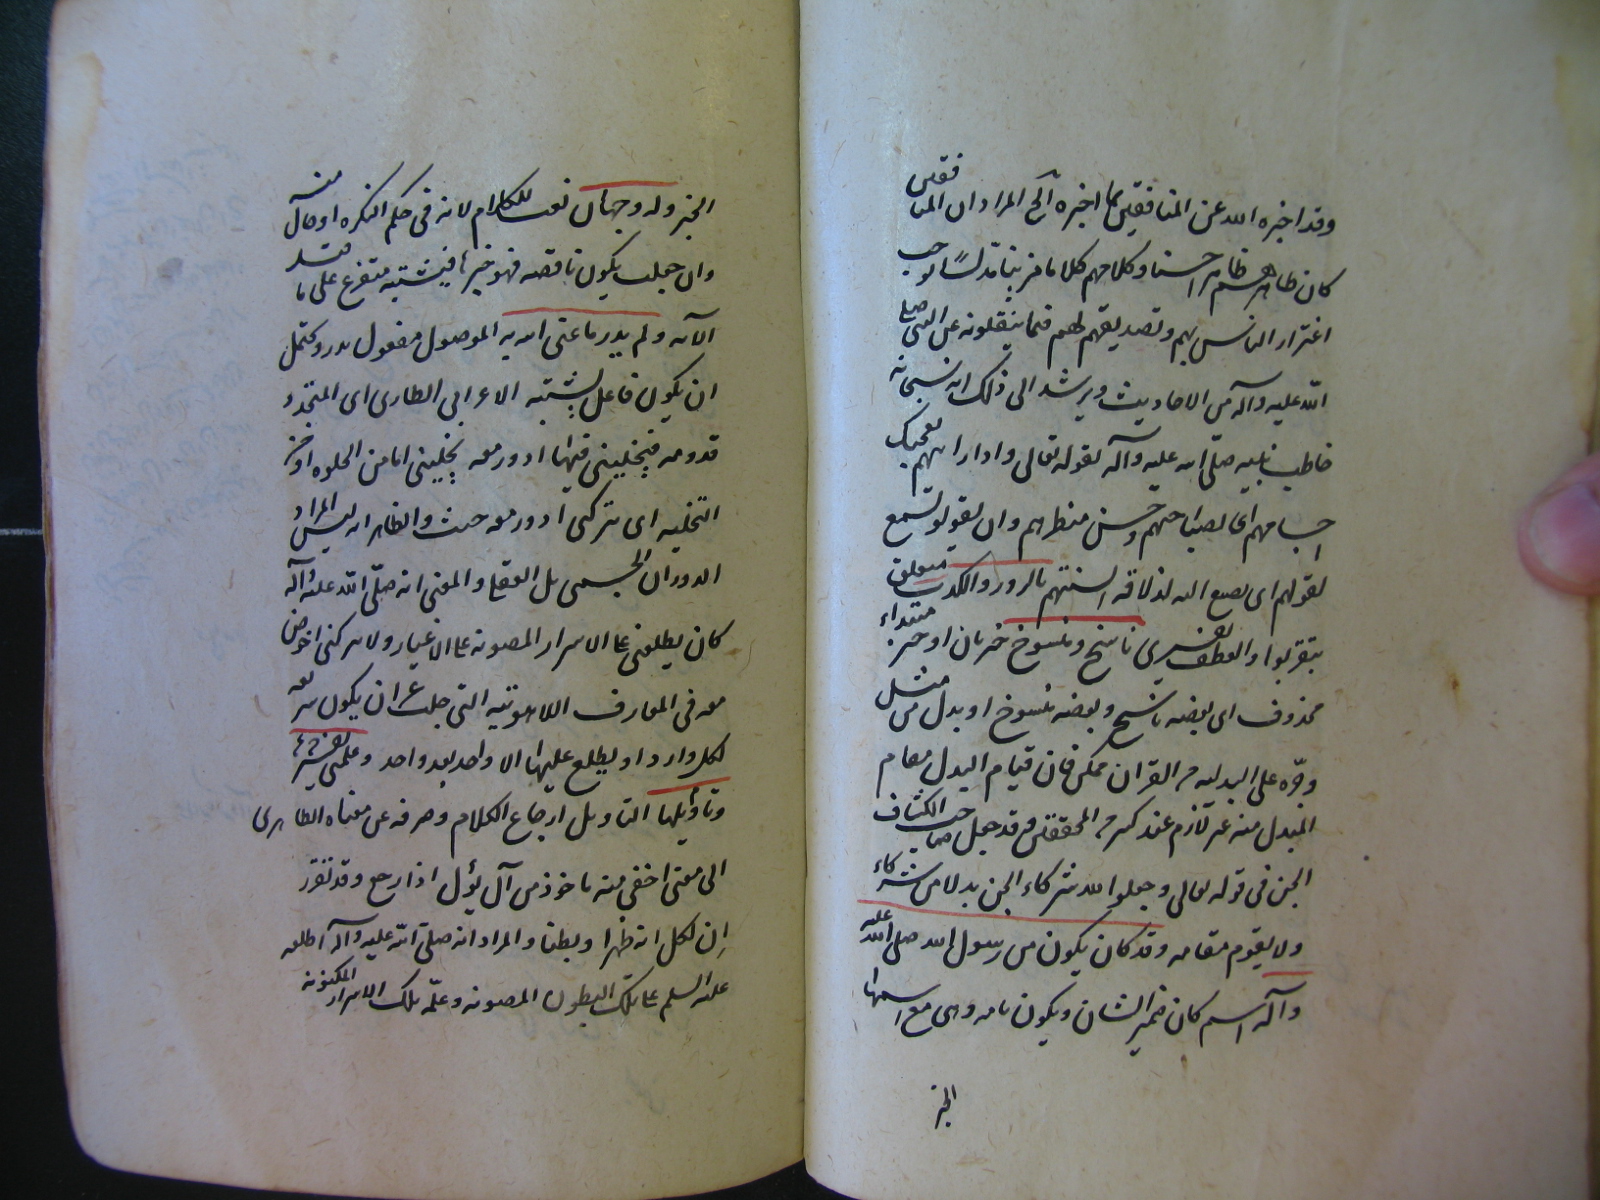 وقد اخبره الله عن المنافقين بما اخبره الخ المراد ان المنافقين
كان ظاهرهم ظاهرا حسنا وكلامهم كلاما مزينا مدلسا يوجب
اغترار الناس بهم وتصديقهم لهم فيما ينقلونه عن النبي صلى
الله عليه وآله من الاحاديث ويرشد الى ذلك انه سبحانه
خاطب نبيه صلى الله عليه وآله بقوله تعالى واذا رايتهم تعجبك
اجسامهم اى لصباحتهم وحسن منظرهم وان يقولوا تسمع
لقولهم اى يصغ اليه لذلاقة السنتهم بالزور والكذب متعلق
بتقربوا والعطف تفسيرى ناسخ ومنسوخ خبر ثان او خبر مبتداء
محذوف اى بعضه ناسخ وبعضه منسوخ او بدل من مثل
وجره على البدلية من القران ممكن فان قيام البدل مقام
المبدل منه غير لازم عند كثير من المحققين وقد جعل صاحب الكشاف
الجن فى قوله تعالى وجعلوا لله شركاء الجن بدلا من شركاء
ولا يقوم مقامه وقد كان يكون من رسول الله صلى الله عليه
وآله اسم كان ضمير الشان ويكون تامه وهى مع اسمها
الخبر
الخبر وله وجهان نعت للكلام لانه فى حكم النكره او حال منه
وان جعلت يكون ناقصه فهو خبرها فيشتبه متفرع على ما قبله
الآيه ولم يدر ما عنى الله به الموصول مفعول يدر ويحتمل
ان يكون فاعل يشتبه الاعرابى الطارى اى المتجدد
قدومه فيخلينى فيها ادور معه يخلينى اما من الخلوه او من
التخليه اى يتركنى ادور معه حيث دار والظاهر انه ليس المراد
الدوران الجسمى بل العقلى والمعنى انه صلى الله عليه وآله
كان يطلعنى على الاسرار المصونه عن الاغيار ويتركنى اخوض
معه فى المعارف اللاهوتيه التى جلت عن ان يكون شرعه
لكل وارد او يطلع عليها الا واحد بعد واحد وعلمنى تفسيرها
وتأويلها التاويل ارجاع الكلام وصرفه عن معناه الظاهرى
الى معنى اخفى منه ماخوذ من آل يؤل اذا رجع وقد تقرر
ان لكل آيه ظهرا وبطنا والمراد انه صلى الله عليه وآله اطلعه
عليه السلم على تلك البطون المصونه وعلمه تلك الاسرار المكنونه